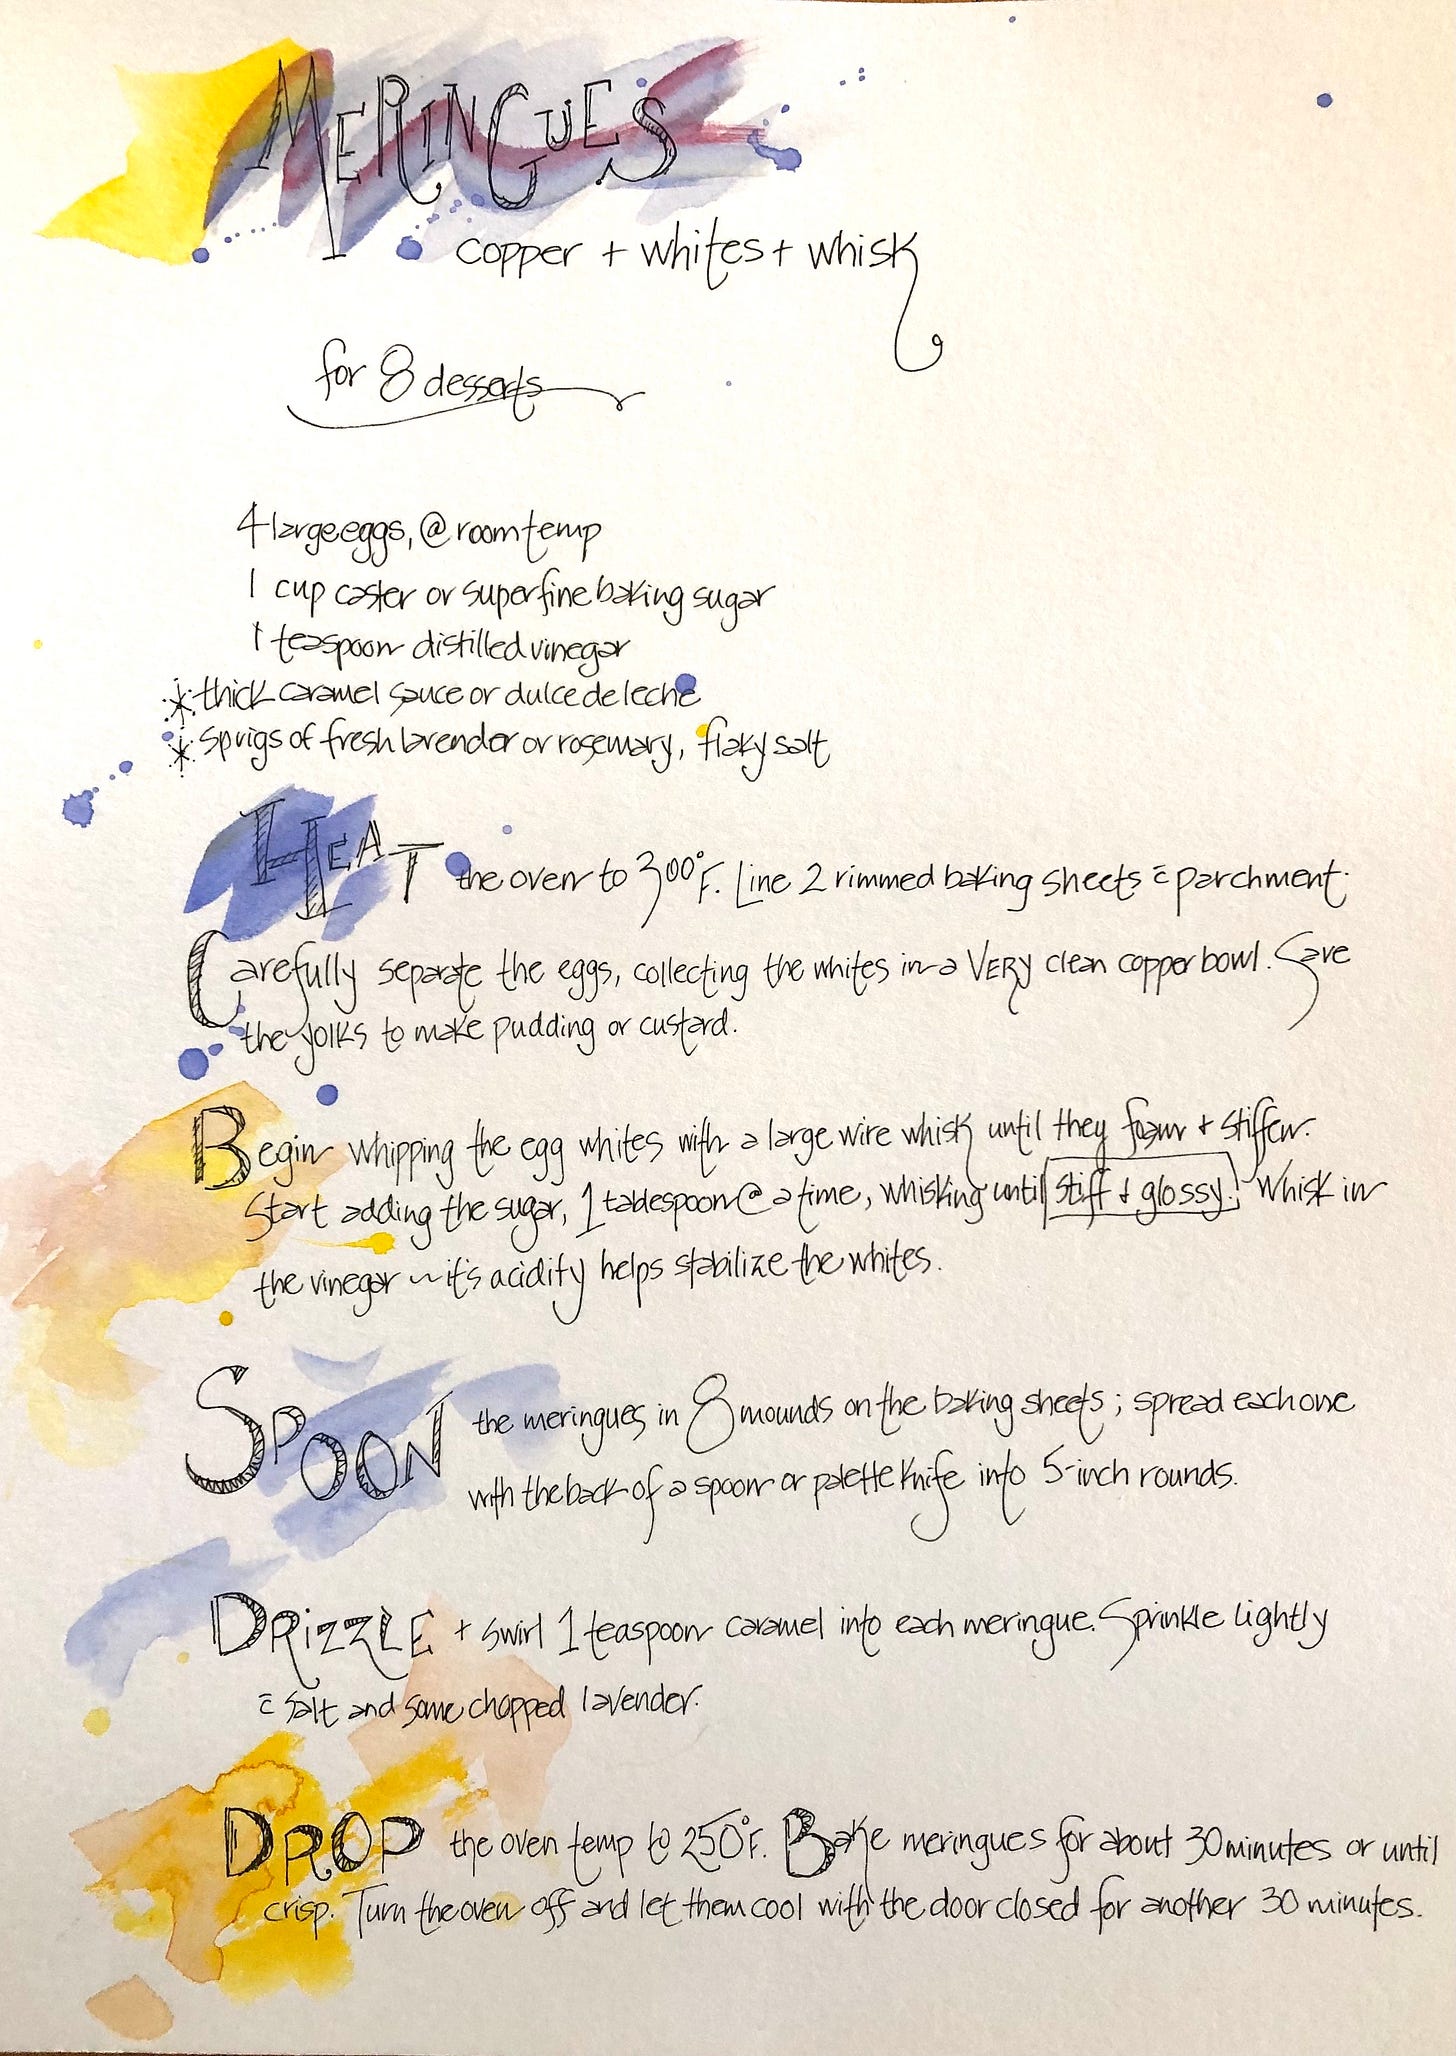 MERINGUES
copper + whites + whisk
for 8 desserts
4 large eggs, @ room temp
1 cup caster or superfine baking sugar
1 teaspoon distilled vinegar
* thick caramel sauce or dulce de leche
* sprigs of fresh lavender or rosemary, flaky salt
HEAT the oven to 300°F. Line 2 rimmed baking sheets c̄ parchment.
Carefully separate the eggs, collecting the whites in a VERY clean copper bowl. Save
the yolks to make pudding or custard.
Begin whipping the egg whites with a large wire whisk until they foam + stiffen.
Start adding the sugar, 1 tablespoon @ a time, whisking until stiff + glossy. Whisk in
the vinegar ~ it's acidity helps stabilize the whites.
SPOON the meringues in 8 mounds on the baking sheets; spread each one
with the back of a spoon or palette knife into 5-inch rounds.
DRIZZLE + swirl 1 teaspoon caramel into each meringue. Sprinkle lightly
c̄ salt and some chopped lavender.
DROP the oven temp to 250°F. Bake meringues for about 30 minutes or until
crisp. Turn the oven off and let them cool with the door closed for another 30 minutes.